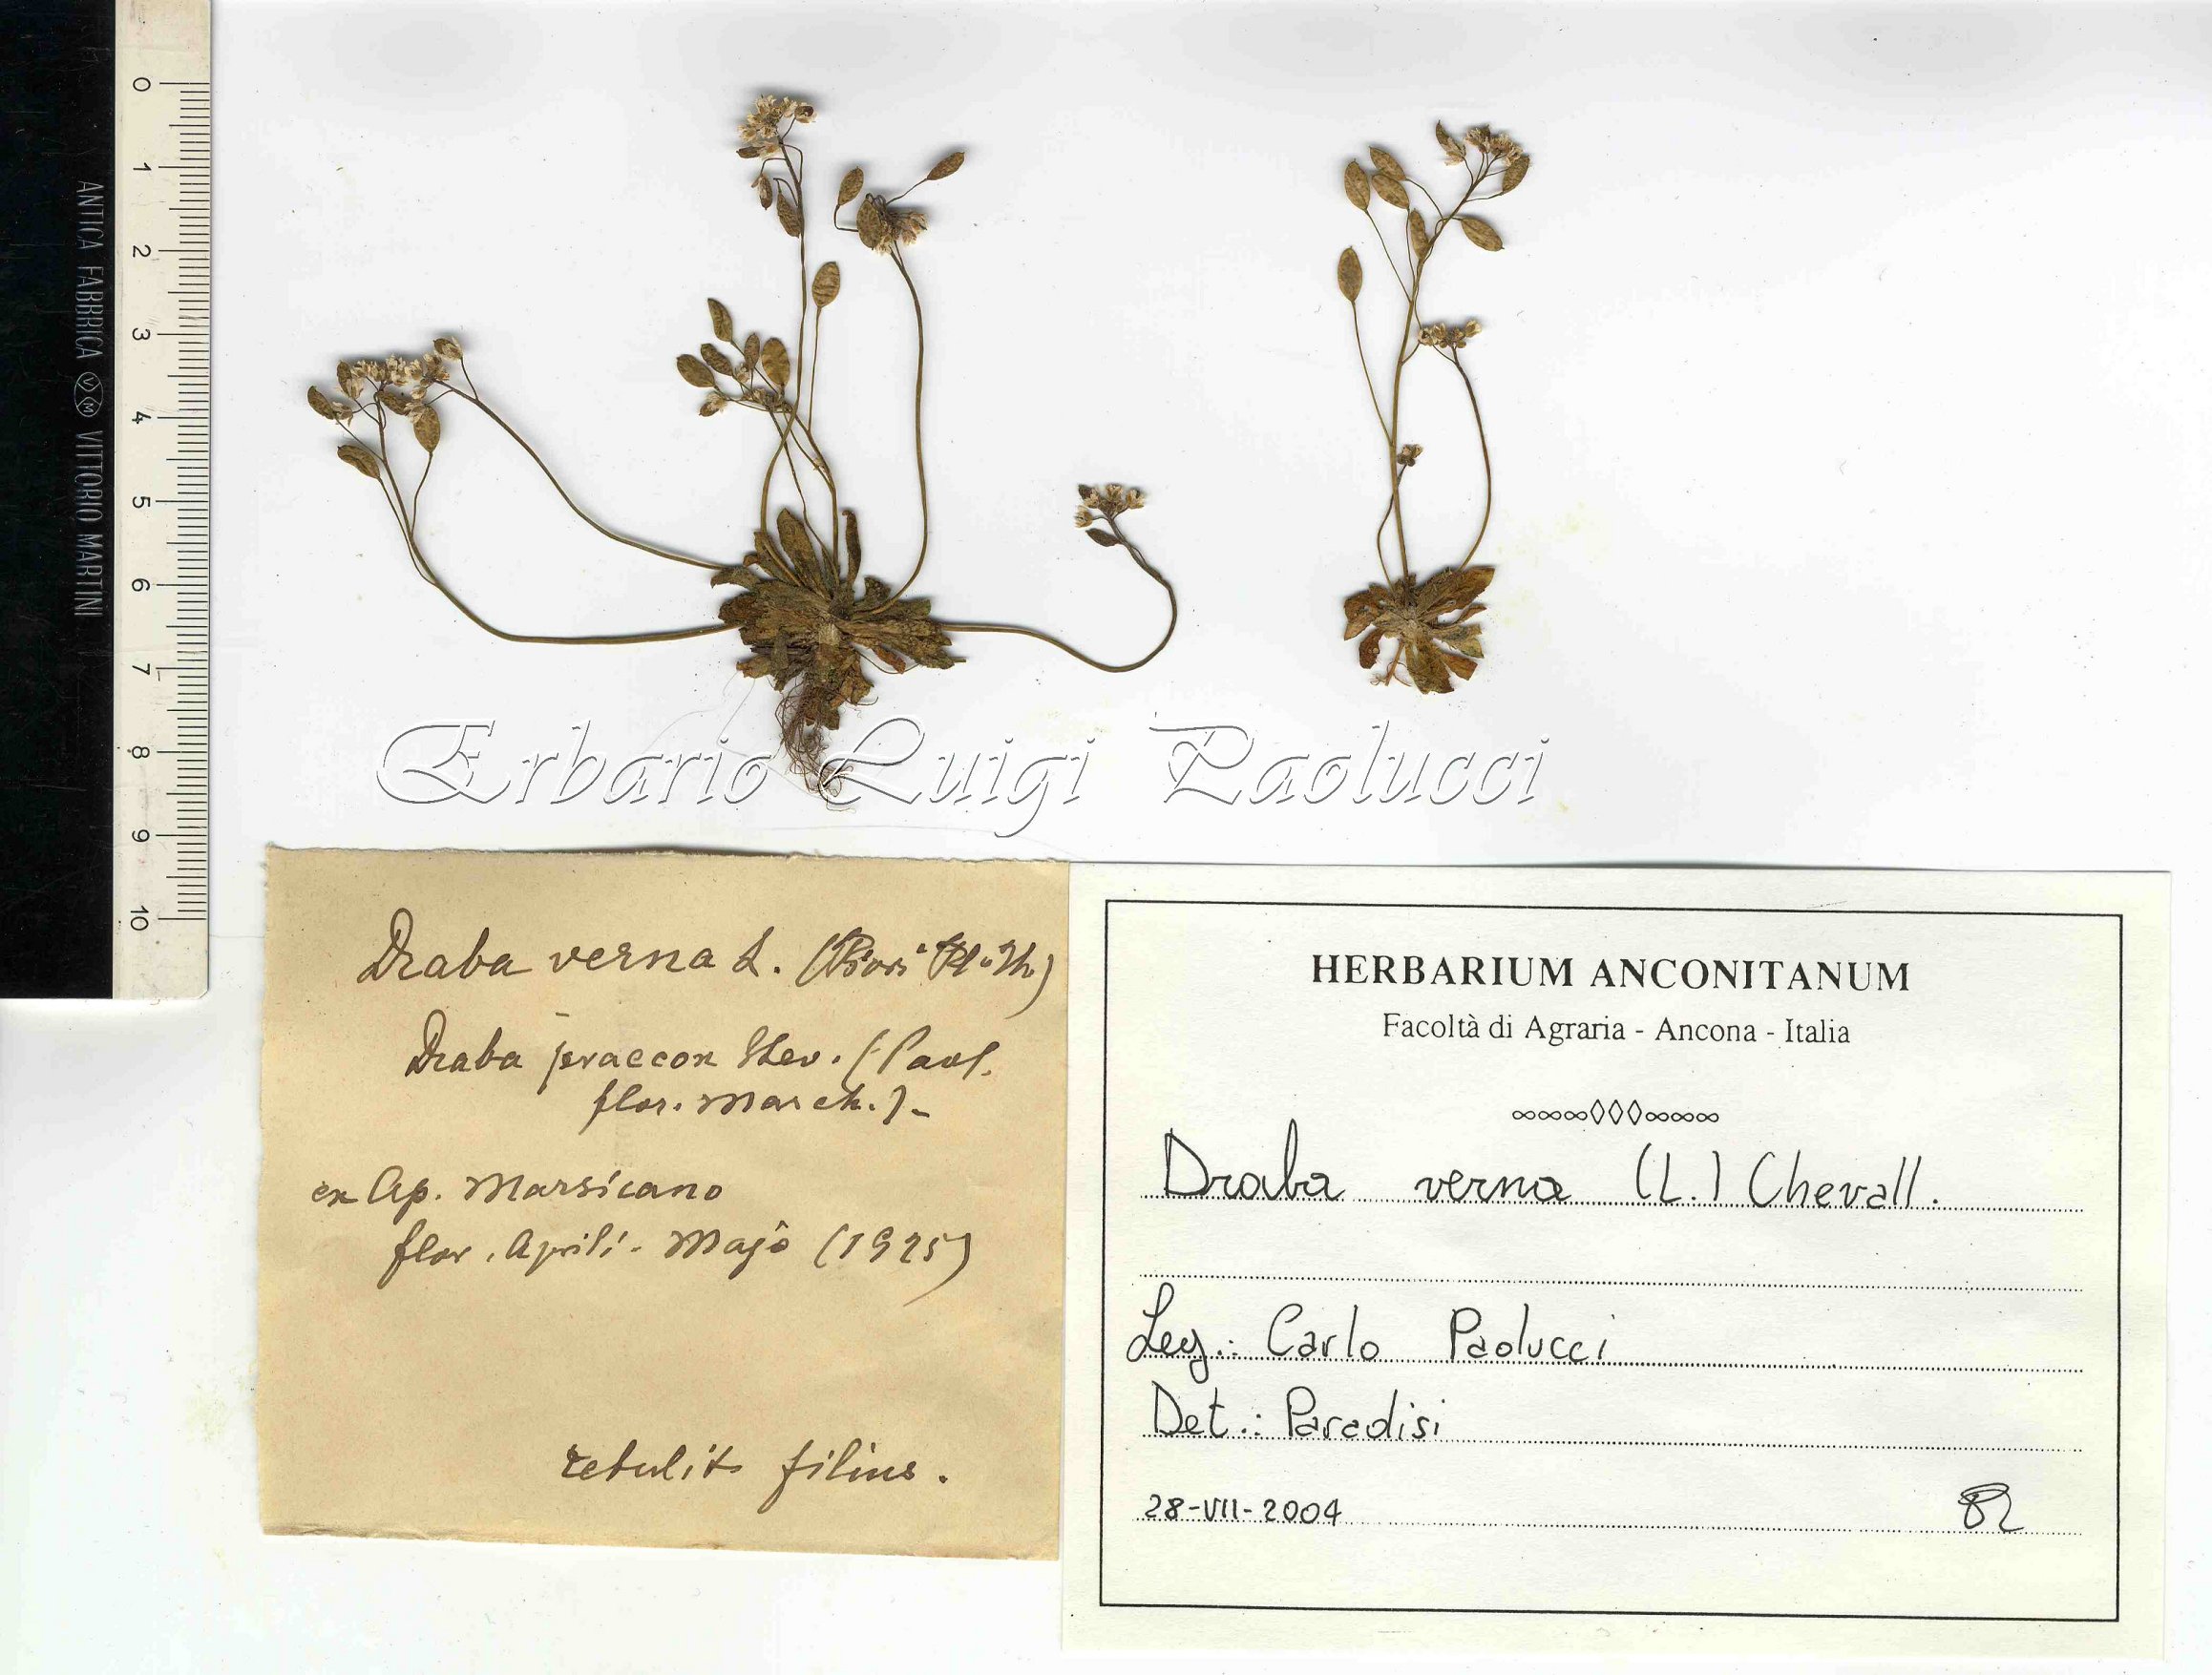 0
1
2
3
4
5
6
7
8
9
10
ANTICA FABBRICA VM VITTORIO MARTINI
Erbario Luigi Paolucci
Draba verna L.
Draba praecox Stev. (Paol.
flor. March.) -
ex Ap. Marsicano
flor. Aprili - Majo (1925)
retulit filius.
HERBARIUM ANCONITANUM
Facoltà di Agraria - Ancona - Italia
Draba verna (L.) Chevall.
Leg.: Carlo Paolucci
Det.: Paradisi
28-VII-2004